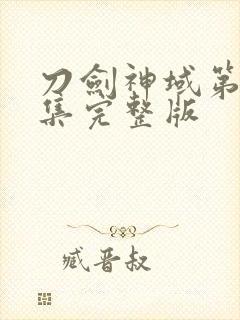 刀劍神域第
集完整版
臧晋叔